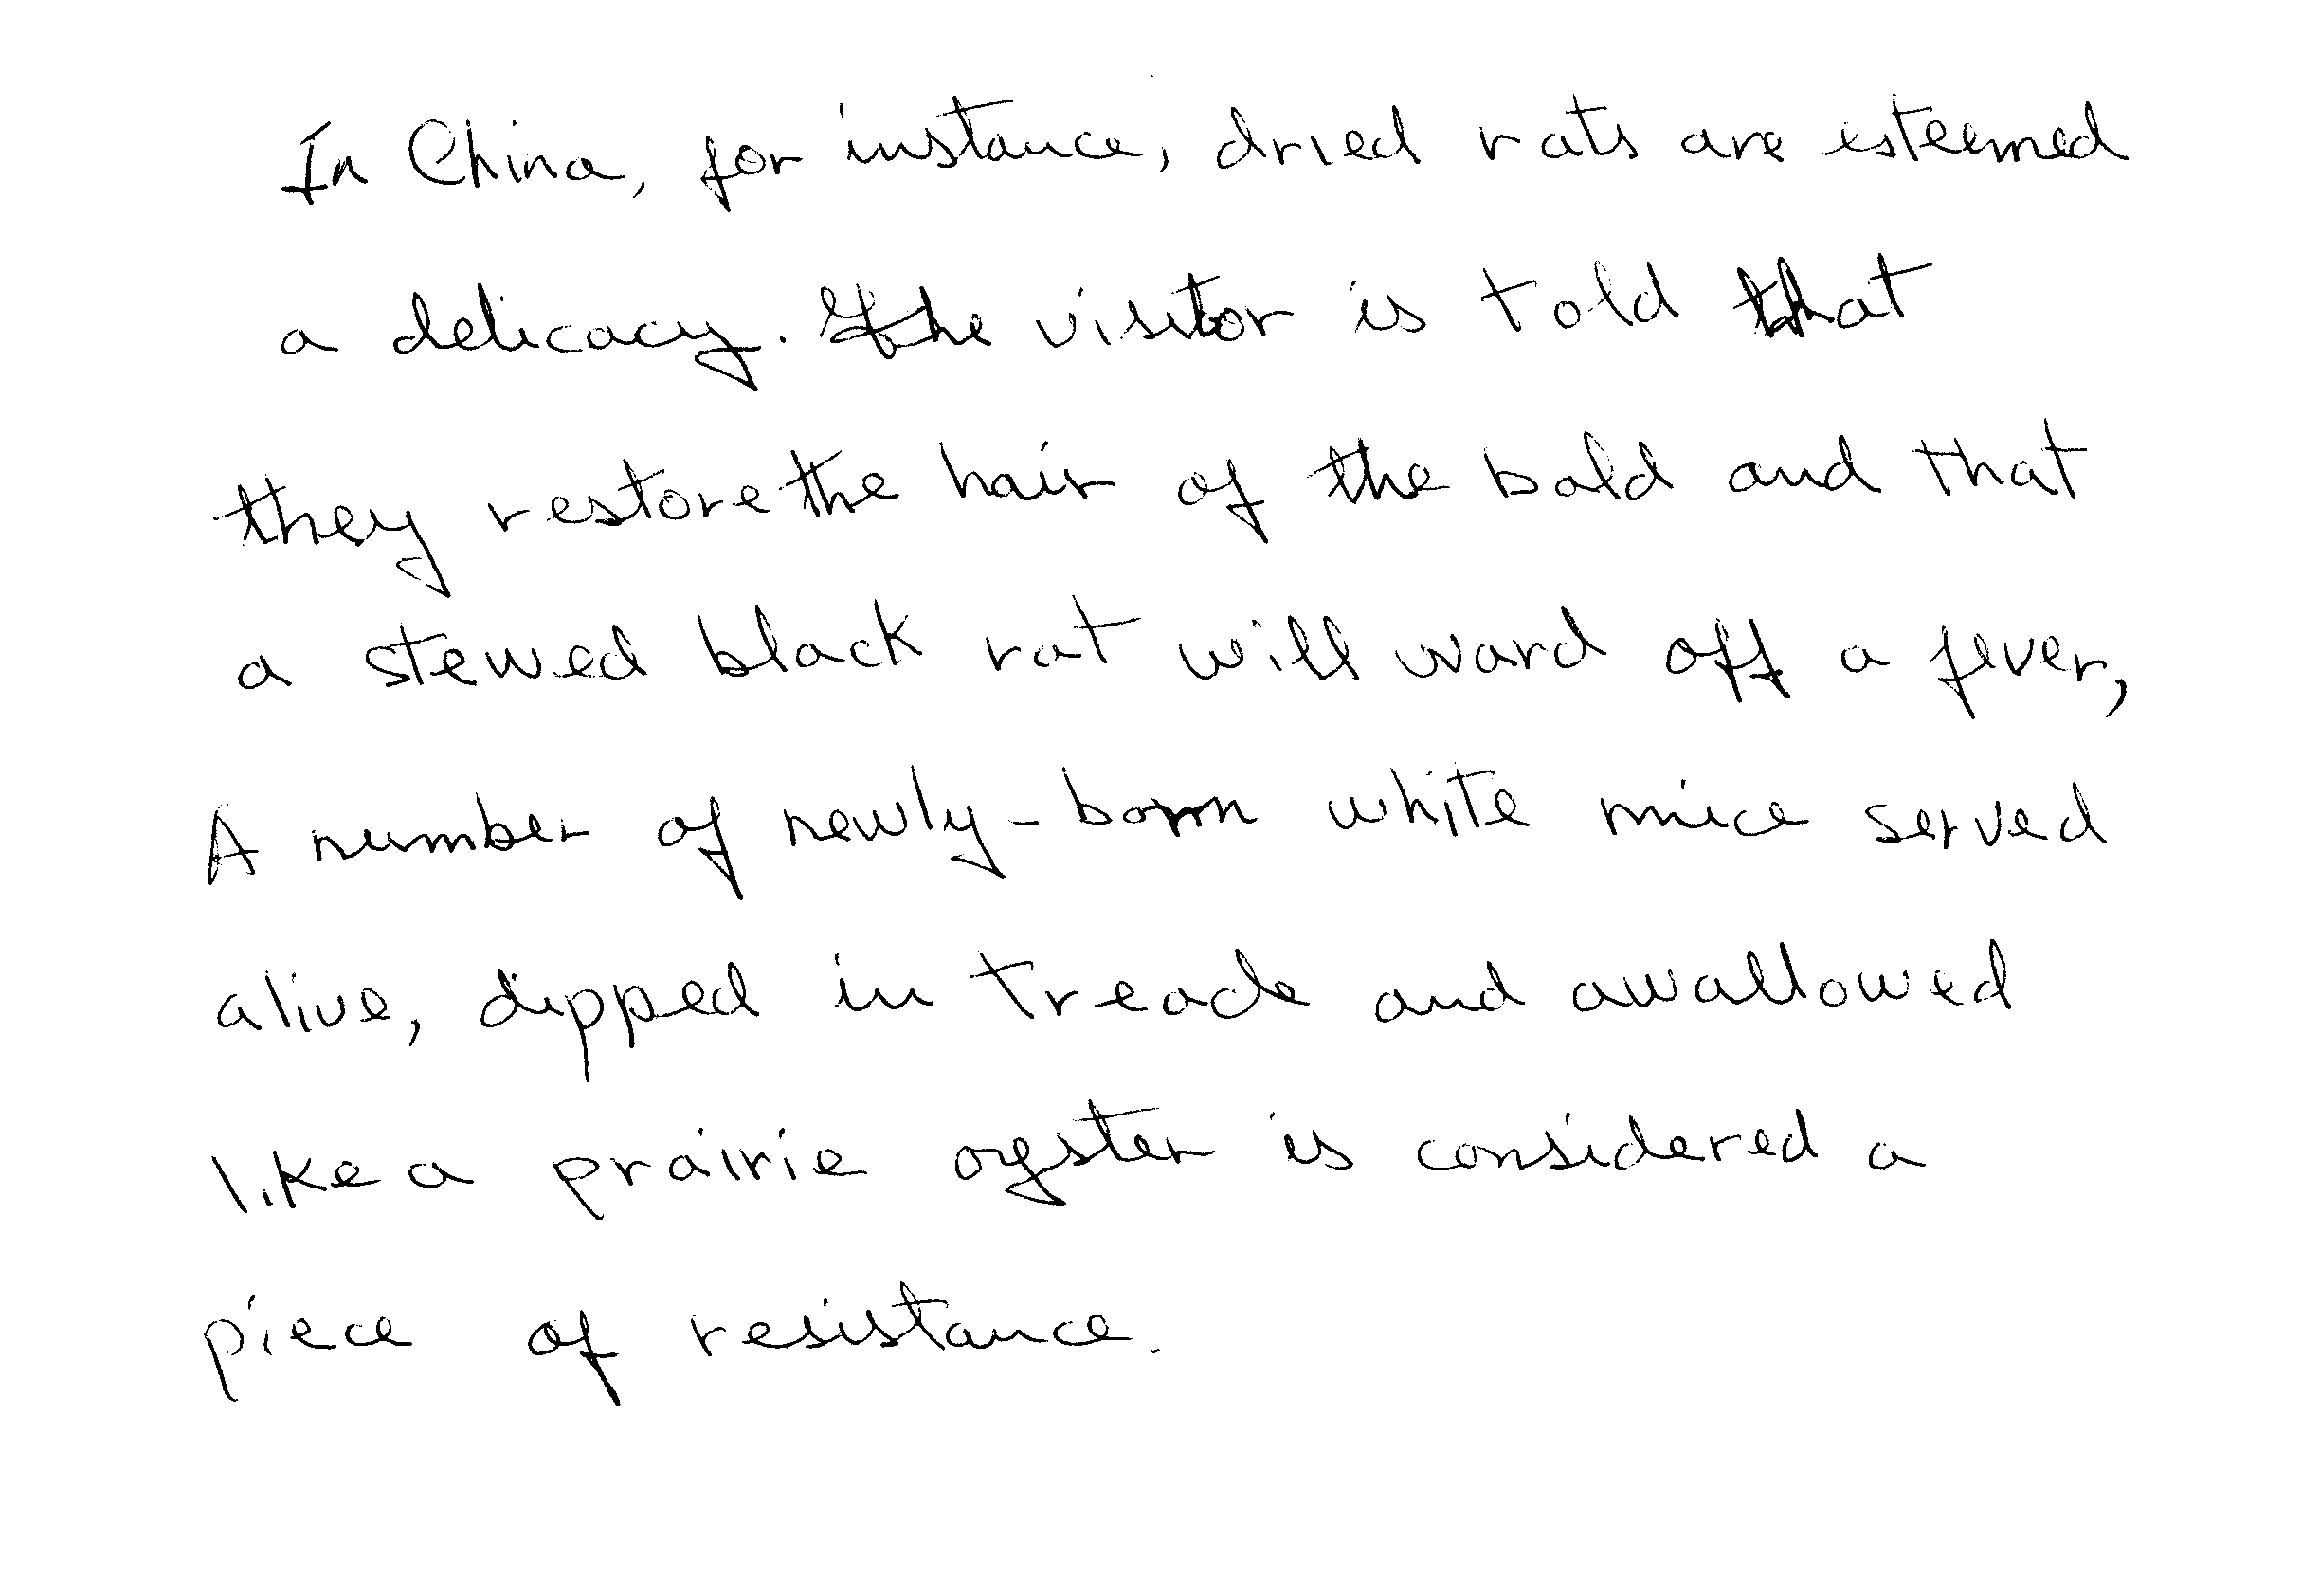 In China, for instance, dried rats are esteemed
a delicacy. The visitor is told that
they restore the hair of the bald and that
a stewed black rat will ward off a fever,
A number of newly-born white mice served
alive, dipped in treacle and awallowed
like a prairie oyster is considered a
piece of resistance.